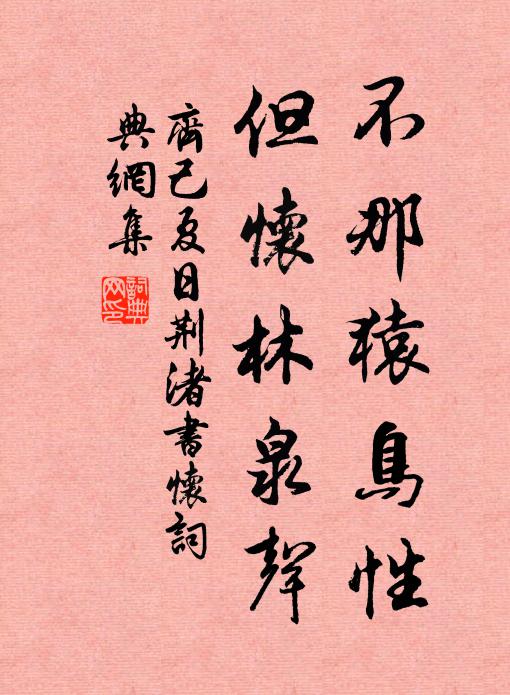 不那猿鳥性
但懷林泉聲
齊己夏日荆渚書懷詞
典網集
詞典
网印